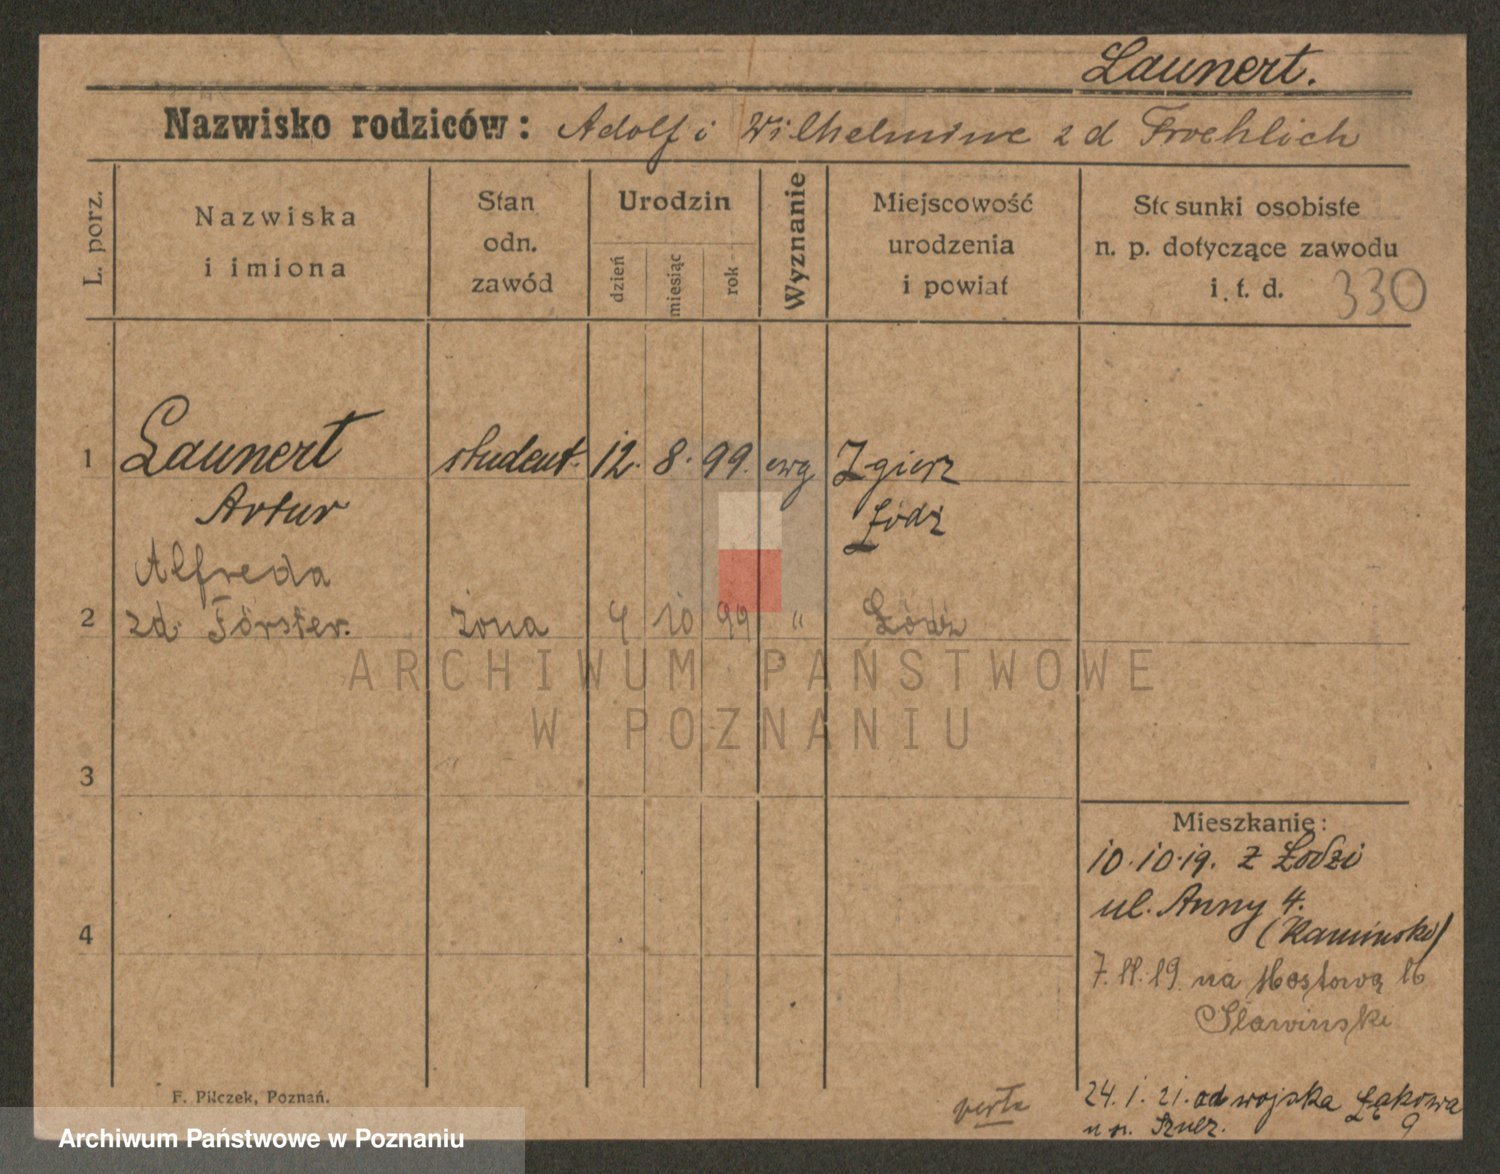 Launert.
Nazwisko rodziców: Adolf i Wilhelmine z d Froehlich
L. porz.
Nazwiska
i imiona
Stan
odn.
zawód
Urodzin
dzień
miesiąc
rok
Wyznanie
Miejscowość
urodzenia
i powiat
Stosunki osobiste
n. p. dotyczące zawodu
i. t. d.
330
1
Launert
Artur
student.
12. 8. 99.
ewg
Zgierz
Łódź
2
Alfreda
zd. Förster.
żona
4 10 99
"
Łódź
3
4
ARCHIWUM PAŃSTWOWE
W POZNANIU
Mieszkanie:
10.10.19. z Łodzi
ul. Anny 4.
(Kaminski)
7.11.19 na Mostową 16
Sławinski
24.1.21. od wojska Łąkowa
9
F. Pilczek, Poznań.
verte
Archiwum Państwowe w Poznaniu